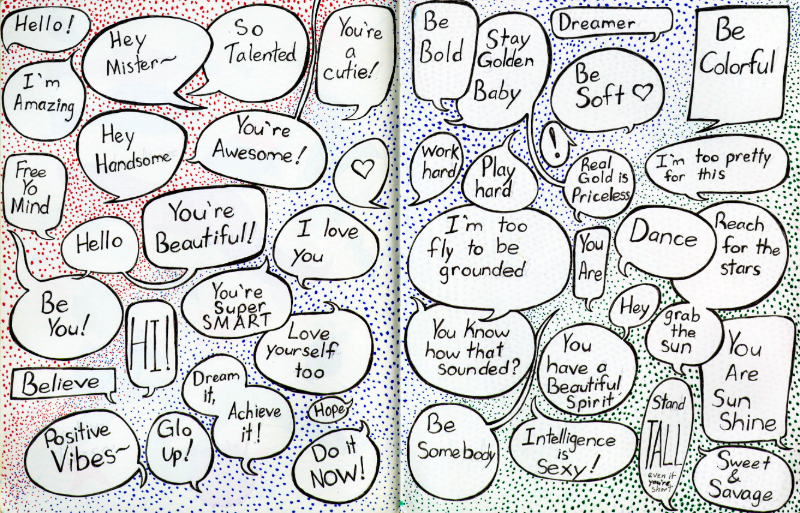 Hello!
Hey
Mister~
So
Talented
You're
a
cutie!
I'm
Amazing
Hey
Handsome
You're
Awesome!
Free
Yo
Mind
Hello
You're
Beautiful!
I love
you
Be
You!
HI!
You're
Super
SMART
Love
yourself
too
Believe
Dream
it,
Achieve
it!
Hope
Positive
Vibes~
Glo
up!
Do it
NOW!
Be
Bold
Stay
Golden
Baby
Dreamer
Be
Soft ♡
Be
Colorful
Work
hard
Play
hard
!
Real
Gold is
Priceless
I'm too pretty
for this
I'm too
fly to be
grounded
You
Are
Dance
Reach
for the
stars
Hey
grab
the
sun
You Know
how that
sounded?
You
have a
Beautiful
Spirit
You
Are
Sun
Shine
Be
Somebody
Intelligence
is
Sexy!
Stand
TALL
even if
you're
short
Sweet
&
Savage